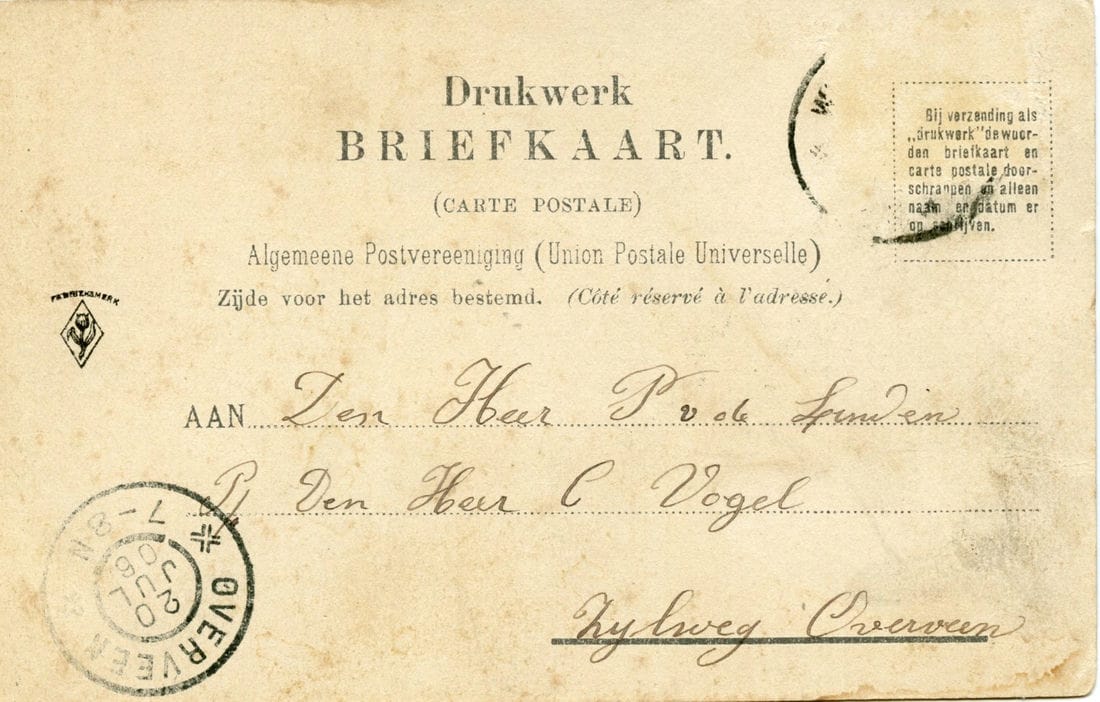 Drukwerk
BRIEFKAART.
(CARTE POSTALE)
Algemeene Postvereeniging (Union Postale Universelle)
Zijde voor het adres bestemd. (Côté réservé à l'adresse.)
Bij verzending als
„drukwerk" de woor-
den briefkaart en
carte postale door-
schrappen en alleen
naam en datum er
op schrijven.
FABRIEKSMERK
AAN Den Heer P v de Linden
Pj Den Heer C Vogel
Zylweg Overveen
OVERVEEN
20
JUL
06
7-8N